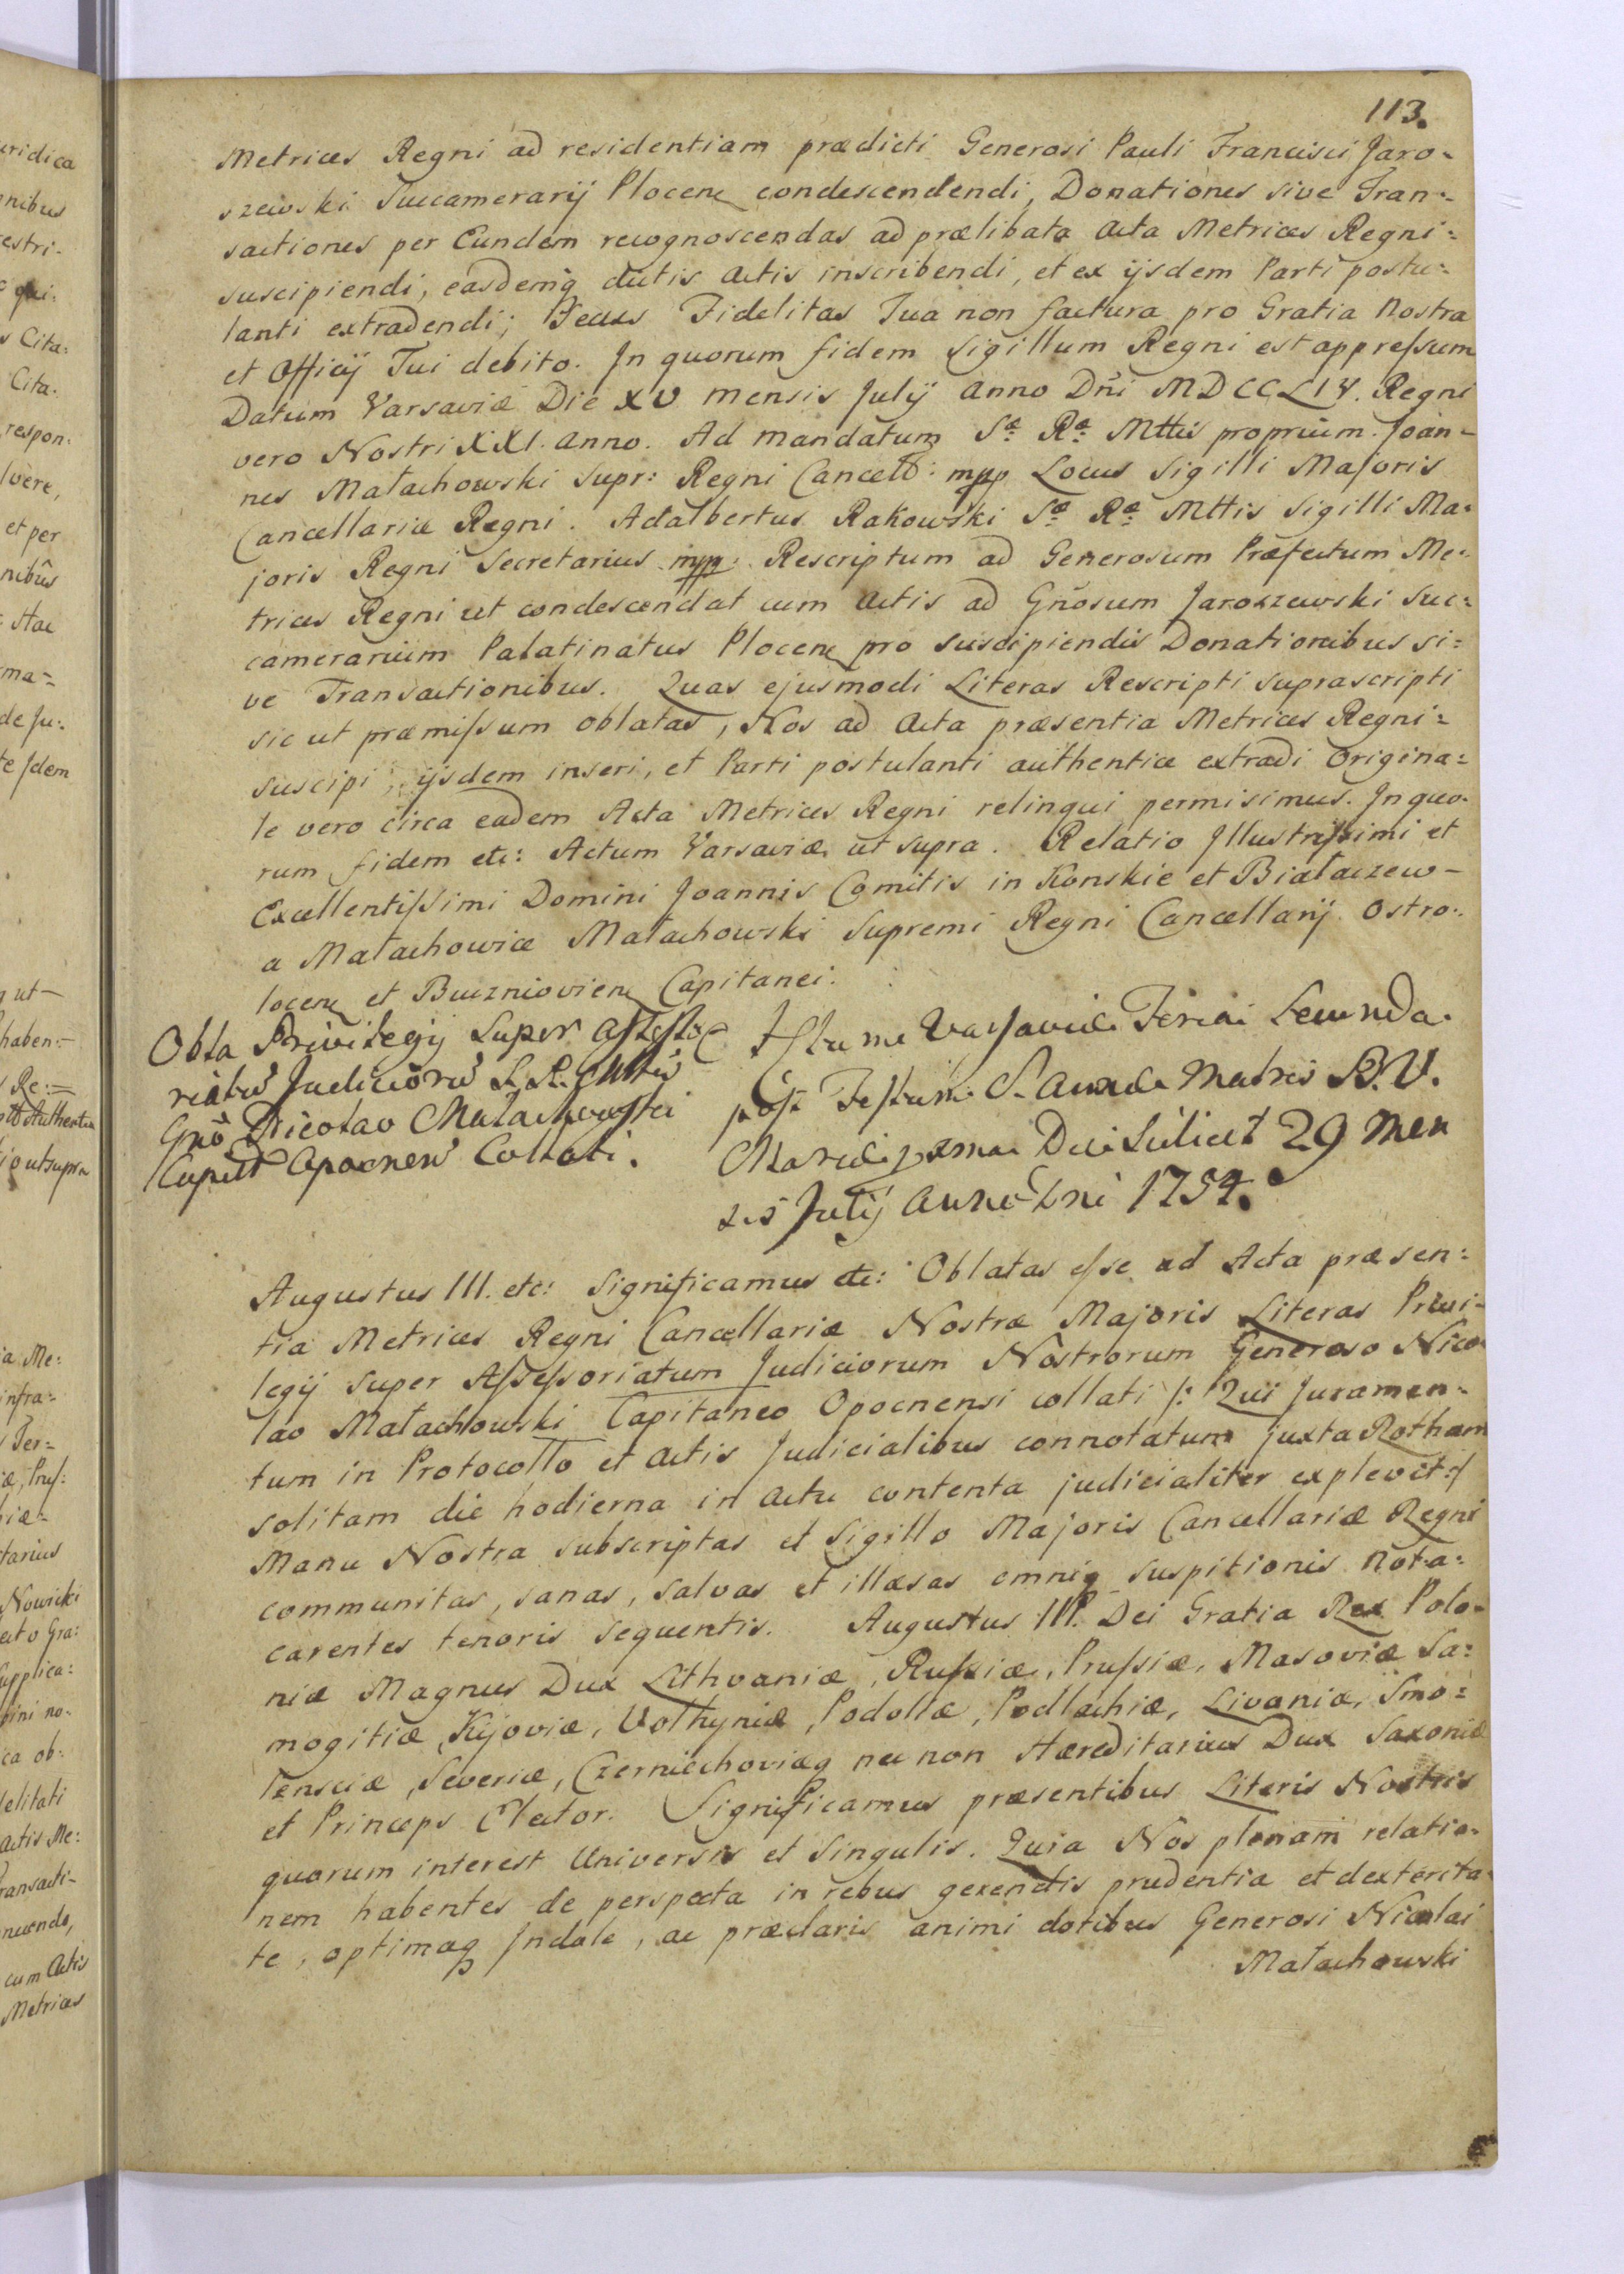 113.
Metrices Regni ad residentiam prædicti Generosi Pauli Francisci Jaro-
szewski Succamerarij Plocen condescendendi, Donationes sive Tran-
sactiones per Eundem recognoscendas ad prælibata Acta Metrices Regni
suscipiendi, easdemq dictis Actis inscribendi, et ex ijsdem Parti postu-
lanti extradendi; Secus Fidelitas Tua non factura pro Gratia Nostra
et Officij Tui debito. In quorum fidem Sigillum Regni est appressum
Datum Varsaviæ Die XV mensis Julij Anno Dñi MDCCLIV. Regni
vero Nostri XXI. Anno. Ad mandatum Sæ Ræ Mttis proprium. Joan-
nes Małachowski Supr: Regni Cancell: mpp Locus Sigilli Majoris
Cancellariæ Regni. Adalbertus Rakowski Sæ Ræ Mttis Sigilli Ma-
joris Regni Secretarius mpp. Rescriptum ad Generosum Præfectum Me-
trices Regni ut condescendat cum Actis ad Gñosum Jaroszewski Suc-
camerarium Palatinatus Plocen pro suscipiendis Donationibus si-
ve Transactionibus. Quas ejusmodi Literas Rescripti suprascripti
sic ut præmissum oblatas, Nos ad Acta præsentia Metrices Regni
suscipi, ijsdem inseri, et Parti postulanti authentice extradi Origina-
le vero circa eadem Acta Metrices Regni relinqui permisimus. In quo-
rum fidem etc: Actum Varsaviæ ut supra. Relatio Illustrissimi et
Excellentissimi Domini Joannis Comitis in Konskie et Białaczew-
a Małachowice Małachowski Supremi Regni Cancellarij Ostro-
locen et Buczniovien Capitanei.
Obta Privilegij Super Assesso
riatu Judicioru S. R. Mttis
Gnõ Nicolao Małachowski
Capit Opocnen Collati.
Actum Varsaviæ Feria Secunda
post Festum S. Annæ Matris B. V.
Mariæ pxma Die Scilicet 29 Men
sis Julij Anno Dni 1754.
Augustus III. etc: Significamus etc: Oblatas esse ad Acta præsen-
tia Metrices Regni Cancellariæ Nostræ Majoris Literas Privi-
legij super Assessoriatum Judiciorum Nostrorum Generoso Nico-
lao Małachowski Capitaneo Opocnensi collati /: Qui Juramen-
tum in Protocollo et Actis Judicialibus connotatum juxta Rotham
solitam die hodierna in Actu contenta judicialiter explevit :/
Manu Nostra subscriptas et Sigillo Majoris Cancellariæ Regni
communitas, sanas, salvas et illæsas omniq suspitionis nota
carentes tenoris sequentis. Augustus III. Dei Gratia Rex Polo-
niæ Magnus Dux Lithvaniæ, Russiæ, Prussiæ, Masoviæ Sa-
mogitiæ, Kijoviæ, Volhyniæ, Podoliæ, Podlachiæ, Livoniæ, Smo-
lensciæ, Severiæ, Czerniechoviæq nec non Hæreditarius Dux Saxoniæ
et Princeps Elector. Significamus præsentibus Literis Nostris
quorum interest Universis et Singulis. Quia Nos plenam relatio-
nem habentes de perspecta in rebus gerendis prudentia et dexterita-
te, optimaq Indole, ac præclaris animi dotibus Generosi Nicolai
Małachowski